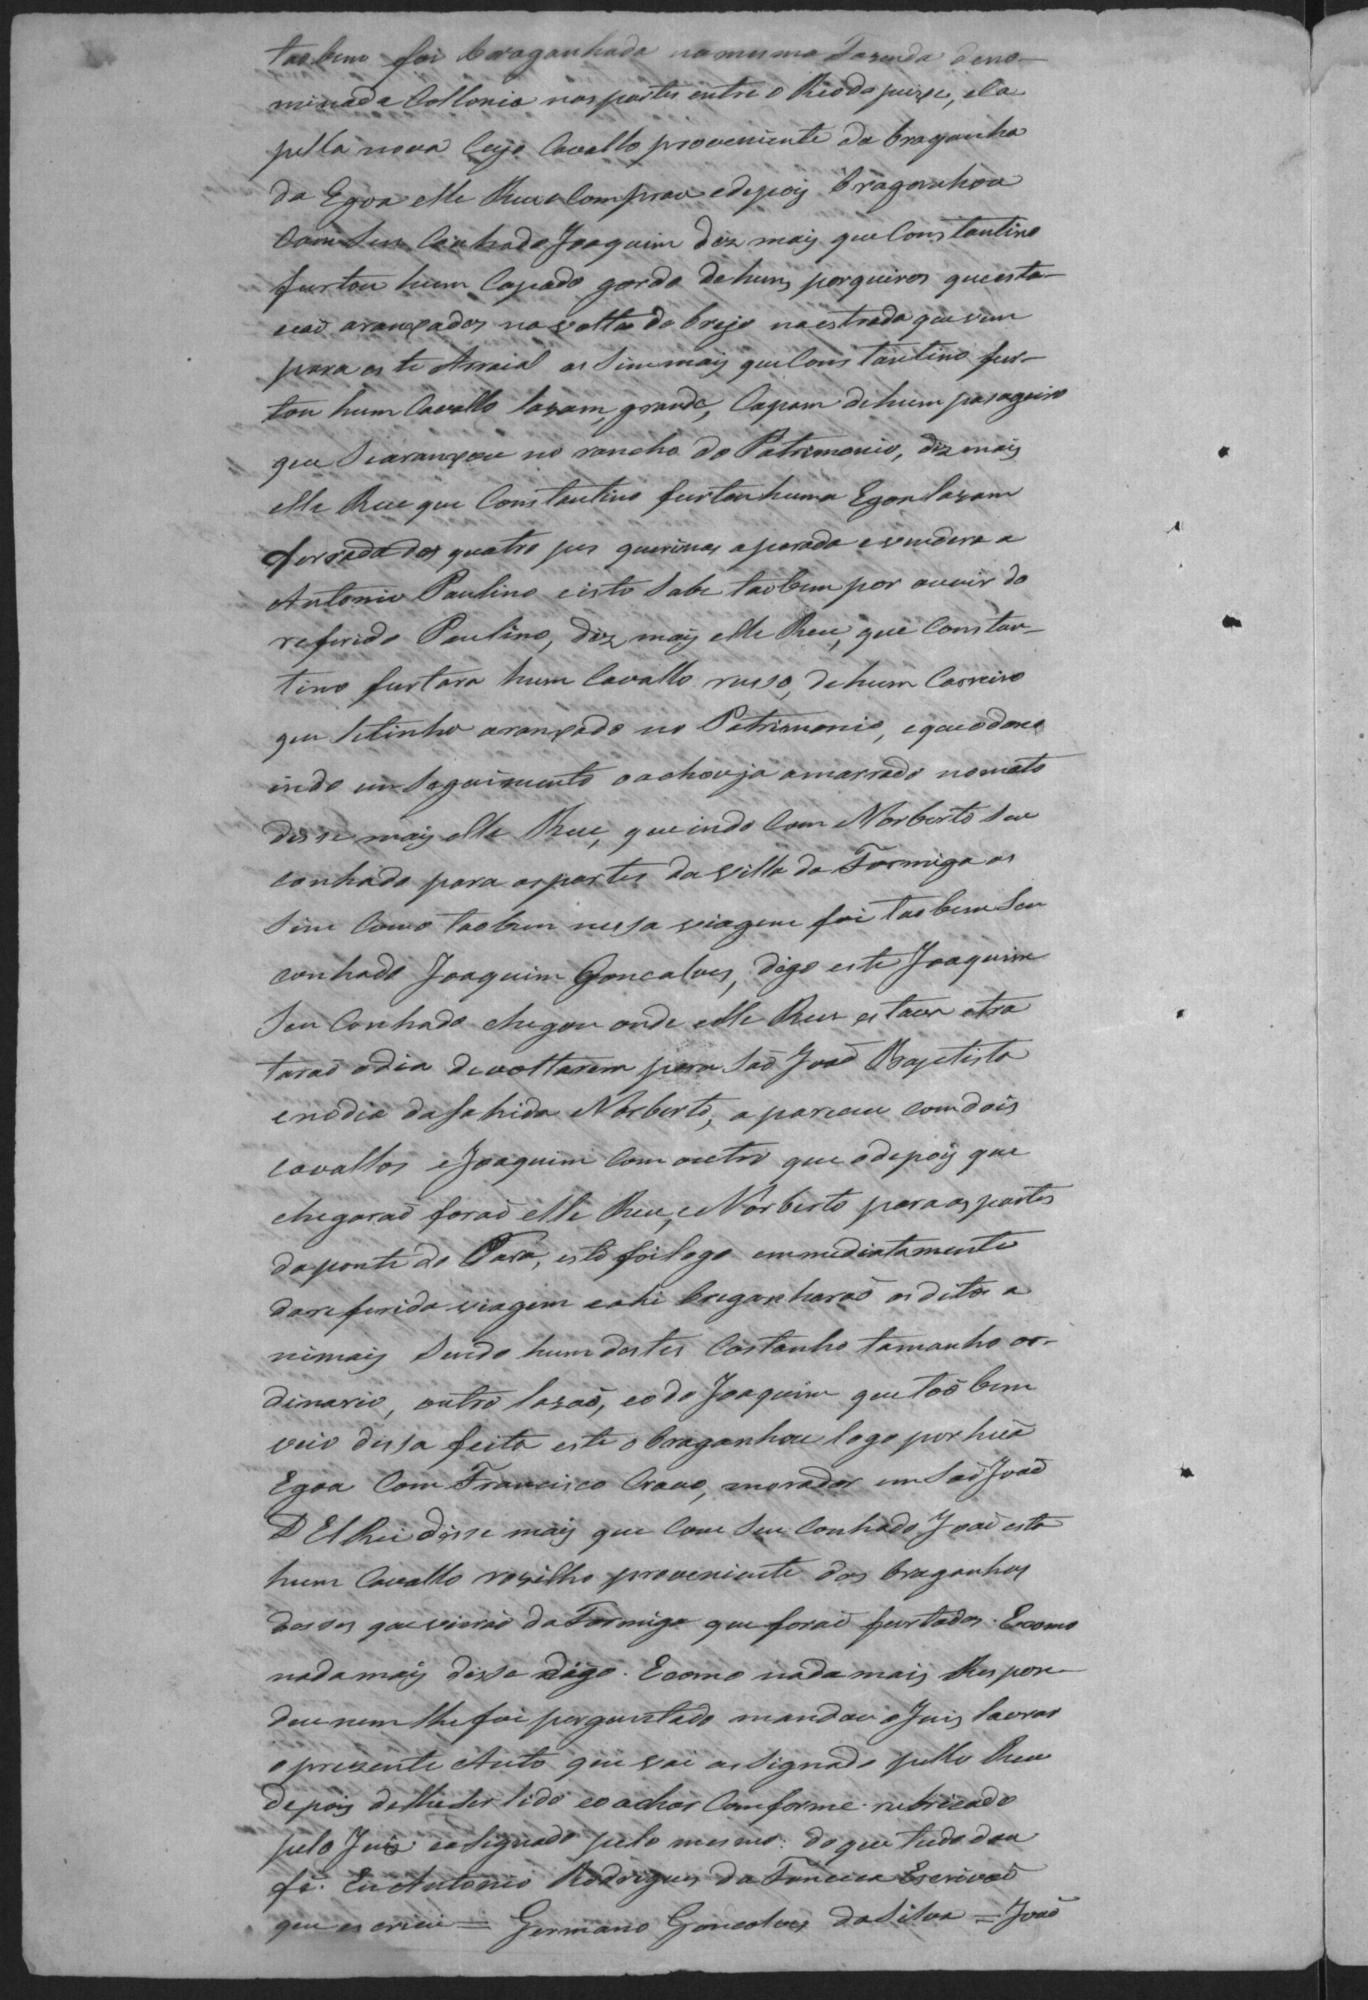 taobem foi braganhada na mesma Fazenda deno-
minada Collonia nas partes entre o Rio do peixe, e la
pella nova cujo Cavallo proveniente da braganha
da Egoa elle Reu comprou e depois braganhou
com seu Cunhado Joaquim diz mais que Constantino
furtou hum Capado gordo de huns porqueiros que esta-
vao aranxados na volta do brejo na estrada que vem
para este Arraial as sim mais que Constantino fur-
tou hum Cavallo lazam, grande, Capam de hum pasageiro
que se aranxou no rancho do Patrimonio, diz mais
elle Reu que Constantino furtou huma Egoa lazam
ferrada dos quatro pes querinas aparada e vendera a
Antonio Paulino e isto sabe taobem por ouvir do
referido Paulino, diz mais elle Reu, que Constan-
tino furtara hum Cavallo russo, de hum Carreiro
que se tinha aranxado no Patrimonio, e que o dono
indo em seguimento o achou ja amarrado no mato
disse mais elle Reu, que indo com Norberto seu
conhado para as partes da villa da Formiga as
sim como taobem nessa viagem foi taobem seu
conhado Joaquim Goncalves, digo este Joaquim
seu Conhado chegou onde elle Reu estava e tra
tarao o dia de voltarem para Saõ Joaõ Baptista
e no dia da sahida Norberto, apareceu com dois
cavallos e Joaquim com outro que o depois que
chegaraõ foraõ elle Reu, e Norberto para as partes
da ponte do Pará, isto foi logo emmediatamente
da referida viagem e ahi braganharaõ os ditos a
nimais sendo hum destes Castanho tamanho or-
dinario, outro lazaõ, e o do Joaquim que taõ bem
veio dessa feita este o braganhou logo por huã
Egoa com Francisco Cravo, morador em Saõ Joaõ
D El Rei disse mais que com seu Conhado Joaõ esta
hum Cavallo rosilho proveniente das braganhas
desses que vieraõ da Formiga que foraõ furtados. E como
nada mais disse digo. E como nada mais Respon-
deu nem lhe foi perguntado mandou o Juis lavrar
o prezente Auto que vai as signado pello Reu
depois de lhe ser lido e o achar Comforme rubricado
pelo Juiz e asignado pelo mesmo. do que tudo dou
fé. Eu Antonio Rodrigues da Fonceca Escrivaõ
que escrivi = Germano Goncalves da Silva = Joaõ